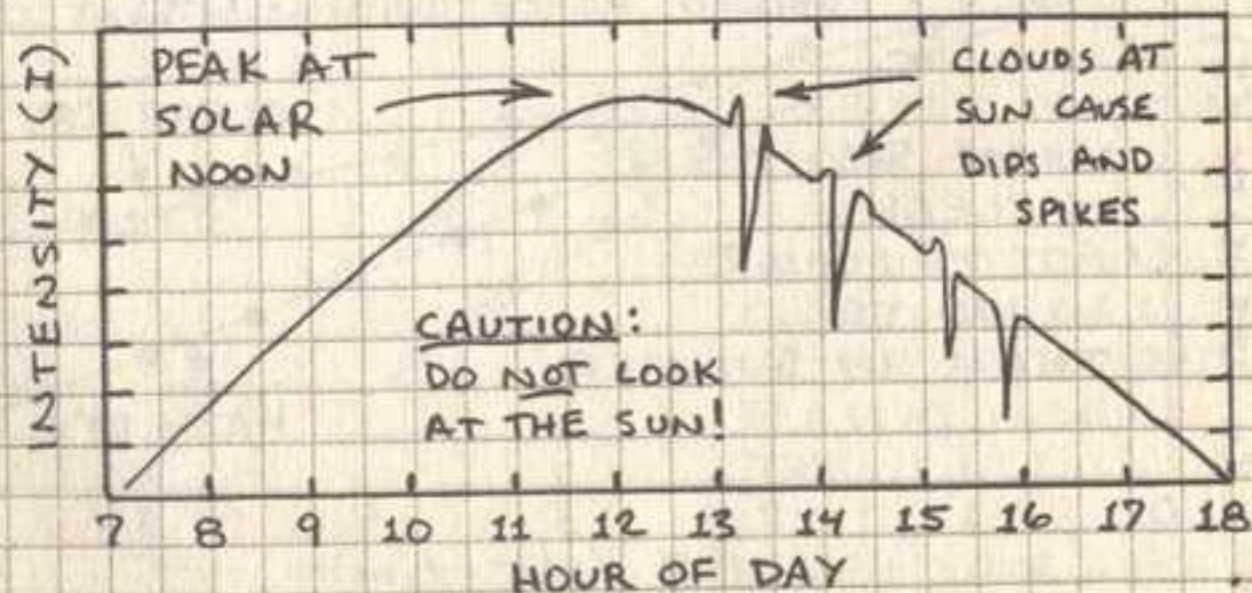 PEAK AT
SOLAR
NOON
CLOUDS AT
SUN CAUSE
DIPS AND
SPIKES
CAUTION:
DO NOT LOOK
AT THE SUN!
INTENSITY (I)
7 8 9 10 11 12 13 14 15 16 17 18
HOUR OF DAY